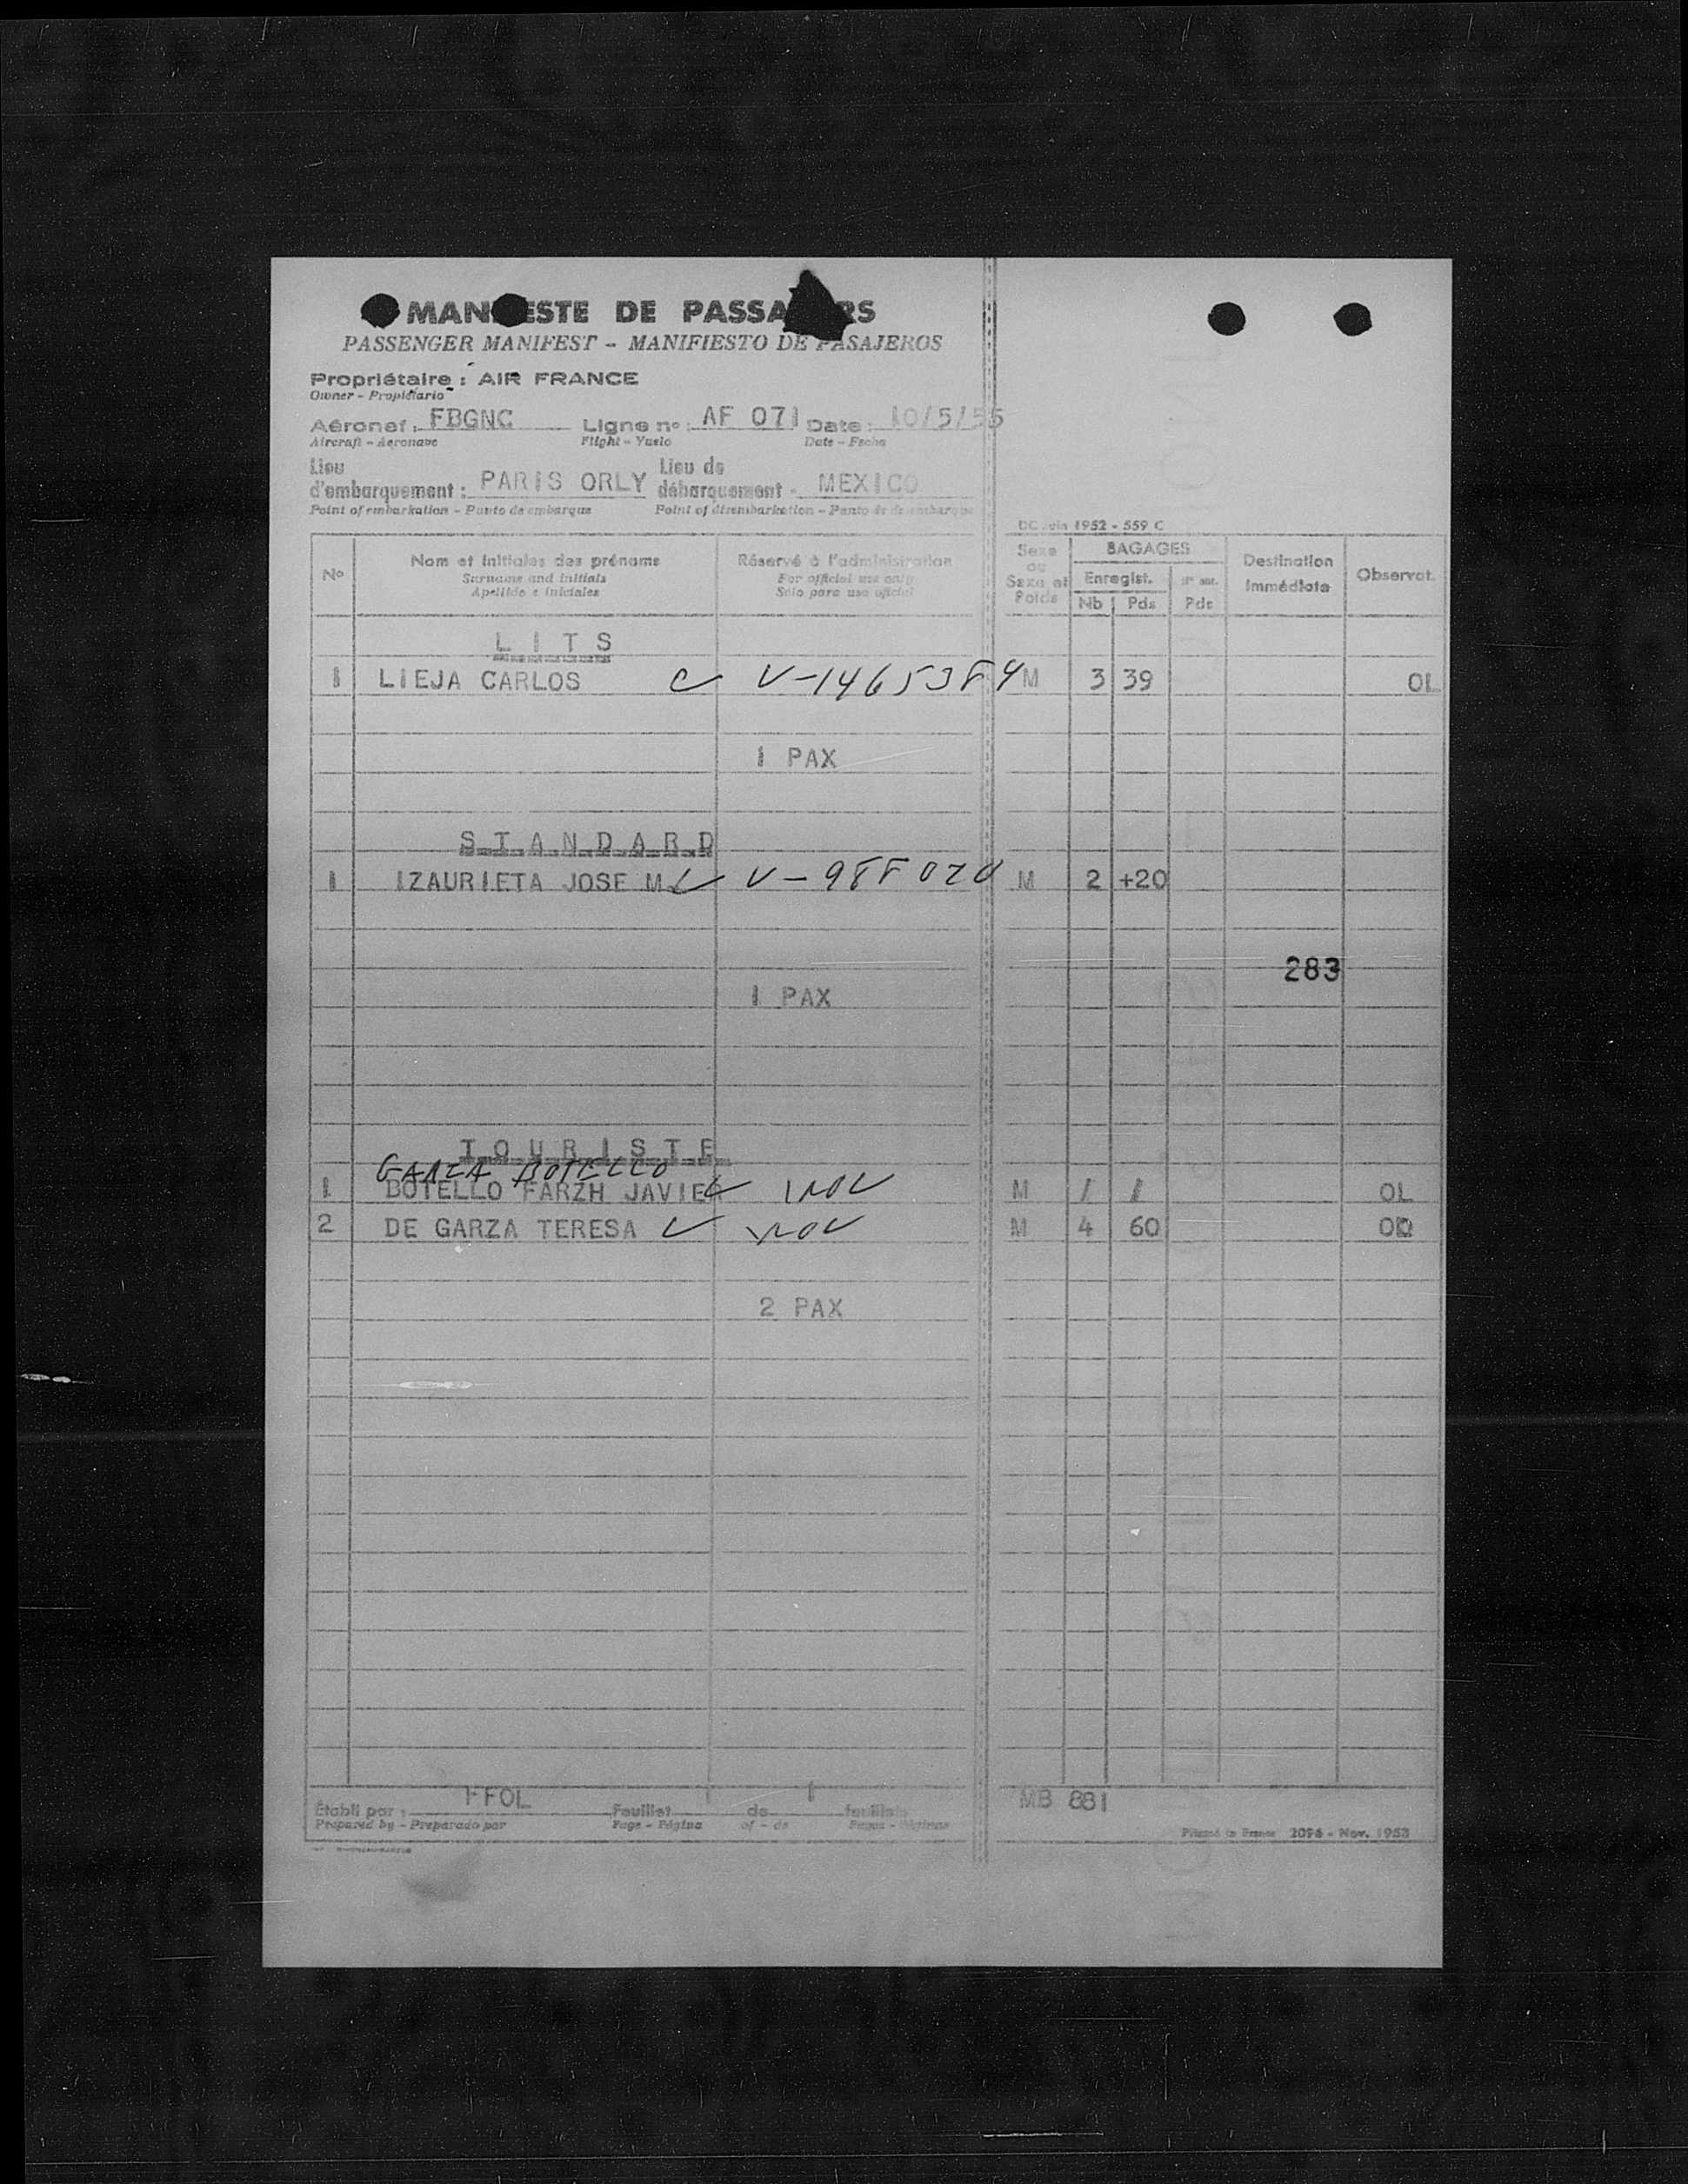 MANIFESTE DE PASSAGERS
PASSENGER MANIFEST - MANIFIESTO DE PASAJEROS
Propriétaire : AIR FRANCE
Owner - Propietario
Aéronef : FBGNC Ligne no : AF 071 Date : 10/5/55
Aircraft - Aeronave Flight - Vuelo Date - Fecha
Lieu d'embarquement : PARIS ORLY Lieu de débarquement - MEXICO
Point of embarkation - Punto de embarque Point of disembarkation - Punto de desembarque
1952 - 559 C
No Nom et initiales des prénoms Réservé à l'administration Sexe ou Sexe et Poids BAGAGES Destination immédiate Observat.
Surname and initials For official use only Enregist.
Apellido e iniciales Sólo para uso oficial Nb Pds Pds
LITS
1 LIEJA CARLOS V-1465384 M 3 39 OL
1 PAX
STANDARD
1 IZAURIETA JOSE M V-988020 M 2 +20
283
1 PAX
TOURISTE
GARZA BOTELLO
1 BOTELLO FARZH JAVIER M / / OL
2 DE GARZA TERESA M 4 60
2 PAX
Établi par : FFOL Feuillet 1 de 1 feuillets MB 881
Prepared by - Preparado por Page - Página of - de Pages - Páginas
Printed in France 2096 - Nov. 1953